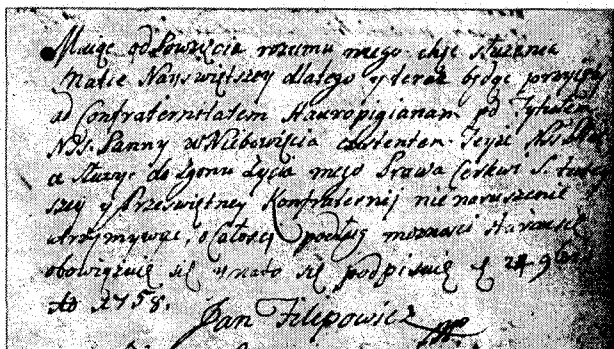 Maiąc od Powzięcia rozumu mego chęć służenia
Matce Nayswiętszey dlatego y teraz będąc przyięty
ad Confraternitatem Stauropigianam pod Tytułem
NSS. Panny w Niebowzięcia existentem Teyże
służyć do zgonu życia mego Prawa Cerkwi S.
szey y Przeswiętney Konfraternij nienaruszenie
utrzymywać, o Całości podług możności starać się
obowięzuię się y nato się podpisuię d. 24 9bris
Ao 1758.
Jan Filipowicz